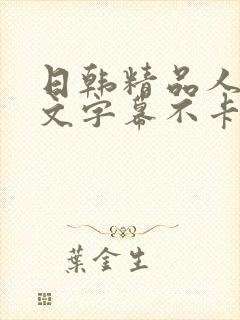 日韩精品人
文字幕不卡
葉金生